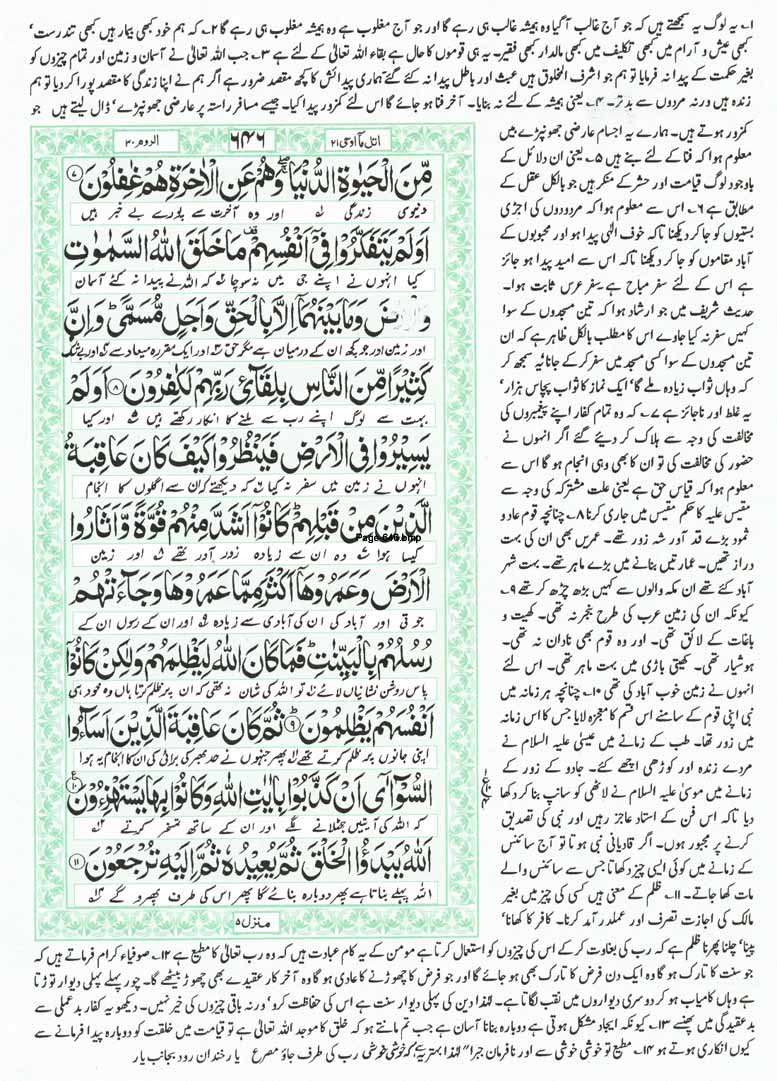 ۱۔ یہ لوگ یہ سمجھتے ہیں کہ جو آج غالب آ گیا وہ ہمیشہ غالب ہی رہے گا اور جو آج مغلوب ہے وہ ہمیشہ مغلوب ہی رہے گا ۲۔ کہ ہم خود کبھی بیمار ہیں کبھی تندرست'
کبھی عیش و آرام میں کبھی تکلیف میں کبھی مالدار کبھی فقیر۔ یہ ہی قوموں کا حال ہے بقاء اللہ تعالیٰ کے لئے ہے ۳۔ جب اللہ تعالیٰ نے آسمان و زمین اور تمام چیزوں کو
بغیر حکمت کے پیدا نہ فرمایا تو ہم جو اشرف المخلوق ہیں عبث اور باطل پیدا نہ کئے گئے ہماری پیدائش کا کچھ مقصد ضرور ہے اگر ہم نے اپنا زندگی کا مقصد پورا کر دیا تو ہم
زندہ ہیں ورنہ مردوں سے بدتر۔ ۴۔ یعنی ہمیشہ کے لئے نہ بنایا۔ آخر فنا ہو جائے گا اس لئے کمزور پیدا کیا۔ جیسے مسافر راستہ پر عارضی جھونپڑے' ڈال لیتے ہیں جو
کمزور ہوتے ہیں۔ ہمارے یہ اجسام عارضی جھونپڑے ہیں
معلوم ہوا کہ فنا کے لئے بنے ہیں ۵۔ یعنی ان دلائل کے
باوجود لوگ قیامت اور حشر کے منکر ہیں جو بالکل عقل کے
مطابق ہے ۶۔ اس سے معلوم ہوا کہ مردودوں کی اجڑی
بستیوں کو جا کر دیکھنا تاکہ خوف الٰہی پیدا ہو اور محبوبوں کے
آباد مقاموں کو جا کر دیکھنا تاکہ اس سے امید پیدا ہو جائز
ہے اس کے لئے سفر مباح ہے سفر عرس ثابت ہوا۔
حدیث شریف میں جو ارشاد ہوا کہ تین مسجدوں کے سوا
کہیں سفر نہ کیا جاوے اس کا مطلب بالکل ظاہر ہے کہ ان
تین مسجدوں کے سوا کسی مسجد میں سفر کر کے جانا یہ سمجھ کر
کہ وہاں ثواب زیادہ ملے گا' ایک نماز کا ثواب پچاس ہزار'
یہ غلط اور ناجائز ہے ۷۔ کہ وہ تمام کفار اپنے پیغمبروں کی
مخالفت کی وجہ سے ہلاک کر دیئے گئے اگر انہوں نے
حضور کی مخالفت کی تو ان کا بھی وہی انجام ہو گا اس سے
معلوم ہوا کہ قیاس حق ہے یعنی علت مشترکہ کی وجہ سے
مقیس علیہ کا حکم مقیس میں جاری کرنا ۸۔ چنانچہ قوم عاد و
ثمود بڑے قد آور شہ زور تھے۔ عمریں بھی ان کی بہت
دراز تھیں۔ عمارتیں بنانے میں بڑے ماہر تھے۔ بہت شہر
آباد کئے تھے ان مکہ والوں سے کہیں بڑھ چڑھ کر تھے ۹۔
کیونکہ ان کی زمین عرب کی طرح بنجر نہ تھی۔ کھیت و
باغات کے لائق تھی۔ اور وہ قوم بھی نادان نہ تھی۔
ہوشیار تھی۔ کھیتی باڑی میں بہت ماہر تھی۔ اس لئے
انہوں نے زمین خوب آباد کی تھی ۱۰۔ چنانچہ ہر زمانہ میں
نبی اپنی قوم کے سامنے اس قسم کا معجزہ لایا جس کا اس زمانہ
میں زور تھا۔ طب کے زمانے میں عیسیٰ علیہ السلام نے
مردے زندہ اور کوڑھی اچھے کئے۔ جادو کے زور کے
زمانے میں موسیٰ علیہ السلام نے لاٹھی کو سانپ بنا کر دکھا
دیا تاکہ اس فن کے استاد عاجز رہیں اور نبی کی تصدیق
کرنے پر مجبور ہوں۔ اگر قادیانی نبی ہوتا تو آج سائنس
کے زمانے میں کوئی ایسی چیز دکھاتا جس سے سائنس والے
مات کھا جاتے۔ ۱۱۔ ظلم کے معنی ہیں کسی کی چیز میں بغیر
مالک کی اجازت تصرف اور عملدرآمد کرنا۔ کافر کا کھانا'
اتل ما اوحی ۲۱
۶۴۶
الروم ۳۰
مِّنَ الْحَيٰوةِ الدُّنْيَا ۖ وَهُمْ عَنِ الْاٰخِرَةِ هُمْ غٰفِلُوْنَ ۷
دنیوی زندگی لہ اور وہ آخرت سے پورے بے خبر ہیں
اَوَلَمْ يَتَفَكَّرُوْا فِيْٓ اَنْفُسِهِمْ ۣ مَا خَلَقَ اللّٰهُ السَّمٰوٰتِ
کیا انہوں نے اپنے جی میں نہ سوچا کہ اللہ نے پیدا نہ کئے آسمان
وَالْاَرْضَ وَمَا بَيْنَهُمَآ اِلَّا بِالْحَقِّ وَاَجَلٍ مُّسَمًّى ۭ وَاِنَّ
اور زمین اور جو کچھ ان کے درمیان ہے مگر حق اور ایک مقررہ میعاد سے اور بے شک
كَثِيْرًا مِّنَ النَّاسِ بِلِقَآئِ رَبِّهِمْ لَكٰفِرُوْنَ ۸ اَوَلَمْ
بہت سے لوگ اپنے رب سے ملنے کا انکار رکھتے ہیں اور کیا
يَسِيْرُوْا فِي الْاَرْضِ فَيَنْظُرُوْا كَيْفَ كَانَ عَاقِبَةُ
انہوں نے زمین میں سفر نہ کیا کہ دیکھتے کہ ان سے اگلوں کا انجام
الَّذِيْنَ مِنْ قَبْلِهِمْ ۭ كَانُوْٓا اَشَدَّ مِنْهُمْ قُوَّةً وَّاَثَارُوا
Page 646.bmp
کیسا ہوا وہ ان سے زیادہ زور آور تھے اور زمین
الْاَرْضَ وَعَمَرُوْهَآ اَكْثَرَ مِمَّا عَمَرُوْهَا وَجَآءَتْهُمْ
جوتی اور آباد کی ان کی آبادی سے زیادہ اور ان کے رسول ان کے
رُسُلُهُمْ بِالْبَيِّنٰتِ ۭ فَمَا كَانَ اللّٰهُ لِيَظْلِمَهُمْ وَلٰكِنْ كَانُوْٓا
پاس روشن نشانیاں لائے تو اللہ کی شان نہ تھی کہ ان پر ظلم کرتا ہاں وہ خود ہی
اَنْفُسَهُمْ يَظْلِمُوْنَ ۹ ثُمَّ كَانَ عَاقِبَةَ الَّذِيْنَ اَسَآءُوا
اپنی جانوں پر ظلم کرتے تھے پھر جنہوں نے حد بھر کی برائی کی ان کا انجام یہ ہوا
السُّوْٓآٰى اَنْ كَذَّبُوْا بِاٰيٰتِ اللّٰهِ وَكَانُوْا بِهَا يَسْتَهْزِءُوْنَ ۱۰
کہ اللہ کی آیتیں جھٹلانے لگے اور ان کے ساتھ تمسخر کرتے
اَللّٰهُ يَبْدَؤُا الْخَلْقَ ثُمَّ يُعِيْدُهٗ ثُمَّ اِلَيْهِ تُرْجَعُوْنَ ۱۱
اللہ پہلے بناتا ہے پھر دوبارہ بنائے گا پھر اس کی طرف پھرو گے
منزل ۵
پینا' چلنا پھرنا ظلم ہے کہ رب کی بغاوت کر کے اس کی چیزوں کو استعمال کرتا ہے مومن کے یہ کام عبادت ہیں کہ وہ رب تعالیٰ کا مطیع ہے ۱۲۔ صوفیاء کرام فرماتے ہیں کہ
جو سنت کا تارک ہو گا وہ ایک دن فرض کا تارک بھی ہو جائے گا اور جو فرض کا چھوڑنے کا عادی ہو گا وہ آخر کار عقیدے بھی چھوڑ بیٹھے گا۔ چور پہلے پہلی دیوار توڑتا
ہے وہاں کامیاب ہو کر دوسری دیواروں میں نقب لگاتا ہے۔ لہذا دین کی پہلی دیوار سنت ہے اس کی حفاظت کرو' ورنہ باقی چیزوں کی خیر نہیں۔ دیکھو یہ کفار بدعملی سے
بدعقیدگی میں پھنسے ۱۳۔ کیونکہ ایجاد مشکل ہوتی ہے دوبارہ بنانا آسان ہے جب تم مانتے ہو کہ خلق کا موجد اللہ تعالیٰ ہی ہے تو قیامت میں خلقت کو دوبارہ پیدا فرمانے سے
کیوں انکاری ہوتے ہو ۱۴۔ مطیع تو خوشی خوشی سے اور نافرمان جبرا" لہذا بہتر یہ ہے کہ خوشی خوشی رب کی طرف جاؤ مصرع یا رخنداں رود بجانب یار